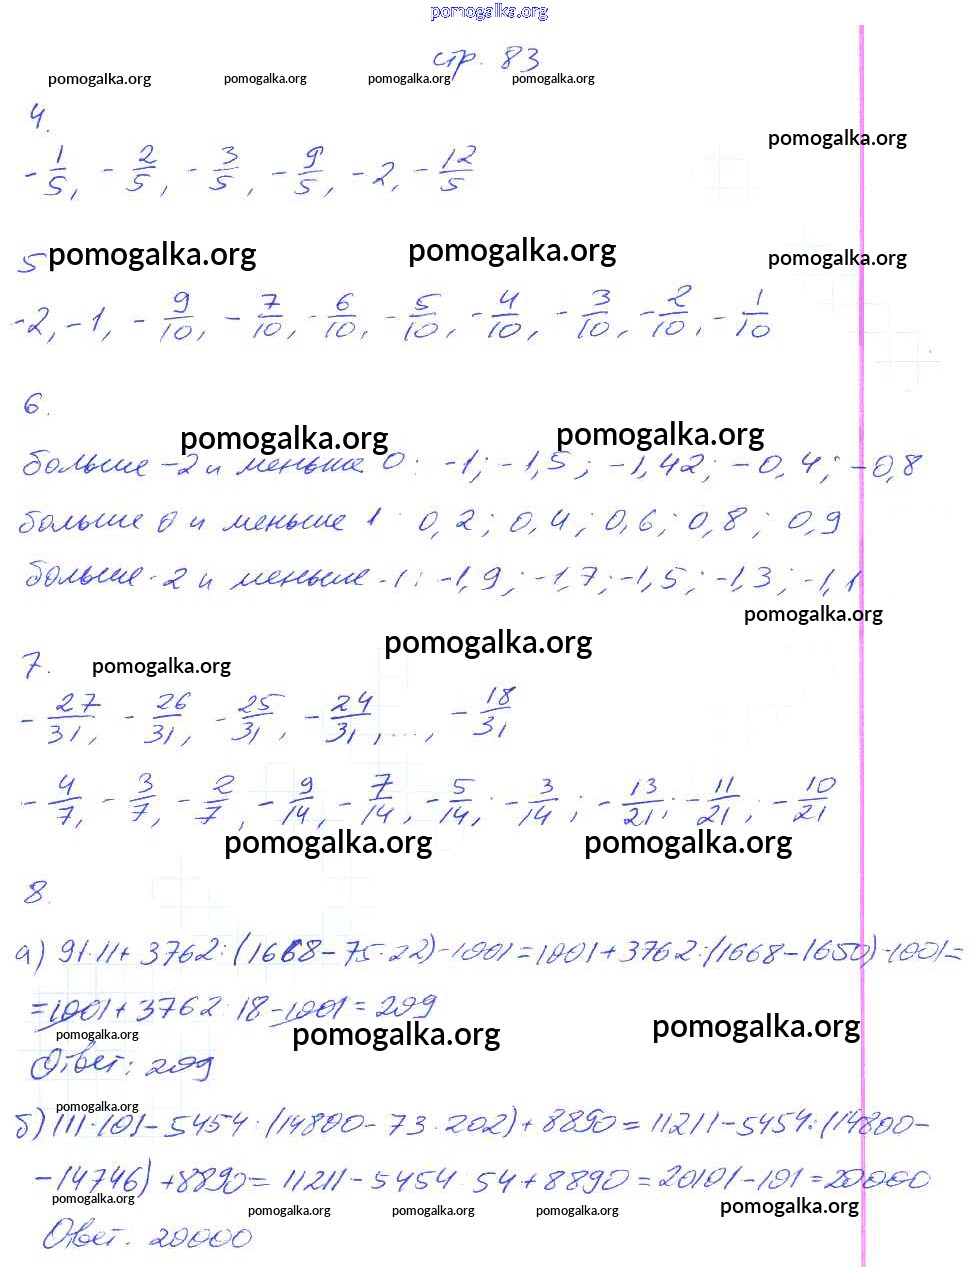 pomogalka.org
стр. 83
pomogalka.org pomogalka.org pomogalka.org pomogalka.org
4.
pomogalka.org
-1/5, -2/5, -3/5, -9/5, -2, -12/5
5 pomogalka.org pomogalka.org pomogalka.org
-2, -1, -9/10, -7/10, -6/10, -5/10, -4/10, -3/10, -2/10, -1/10
6.
pomogalka.org pomogalka.org
больше -2 и меньше 0: -1; -1,5; -1,42; -0,4; -0,8
больше 0 и меньше 1: 0,2; 0,4; 0,6; 0,8; 0,9
больше -2 и меньше -1: -1,9; -1,7; -1,5; -1,3; -1,1
pomogalka.org
pomogalka.org
7. pomogalka.org
-27/31, -26/31, -25/31, -24/31, ..., -18/31
-4/7, -3/7, -2/7, -9/14, -7/14, -5/14; -3/14; -13/21; -11/21; -10/21
pomogalka.org pomogalka.org
8.
а) 91·11+3762:(1668-75·22)-1001=1001+3762:(1668-1650)-1001=
=1001+3762:18-1001=209
pomogalka.org pomogalka.org pomogalka.org
Ответ: 209
pomogalka.org
б) 111·101-5454:(14800-73·202)+8890=11211-5454:(14800-
-14746)+8890=11211-5454:54+8890=20101-101=20000
pomogalka.org pomogalka.org pomogalka.org pomogalka.org pomogalka.org
Ответ. 20000